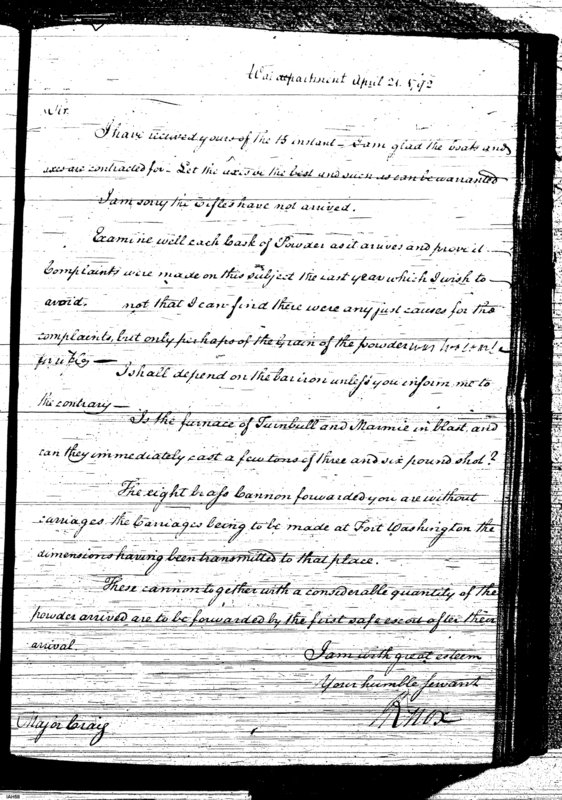 War department April 21. 1792
Sir.
I have received yours of the 15 instant – I am glad the boats and
axes are contracted for – Let the axes be the best and such as can be warranted
I am sorry the rifles have not arrived.
Examine well each Cask of Powder as it arrives and prove it.
Complaints were made on this subject the last year which I wish to
avoid. not that I can find there were any just causes for the
complaints, but only perhaps of the Grain of the powder was
for
I shall depend on the bar iron unless you inform me to
the contrary —
Is the furnace of Turnbull and Marmie in blast, and
can they immediately cast a few tons of three and six pound shot?
The eight brass Cannon forwarded you are without
carriages. the Carriages being to be made at Fort Washington the
dimensions having been transmitted to that place.
These cannon together with a considerable quantity of the
powder arrived are to be forwarded by the first safe escort after their
arrival.
I am with great esteem
Your humble Servant
Knox
Major Craig
IAH58